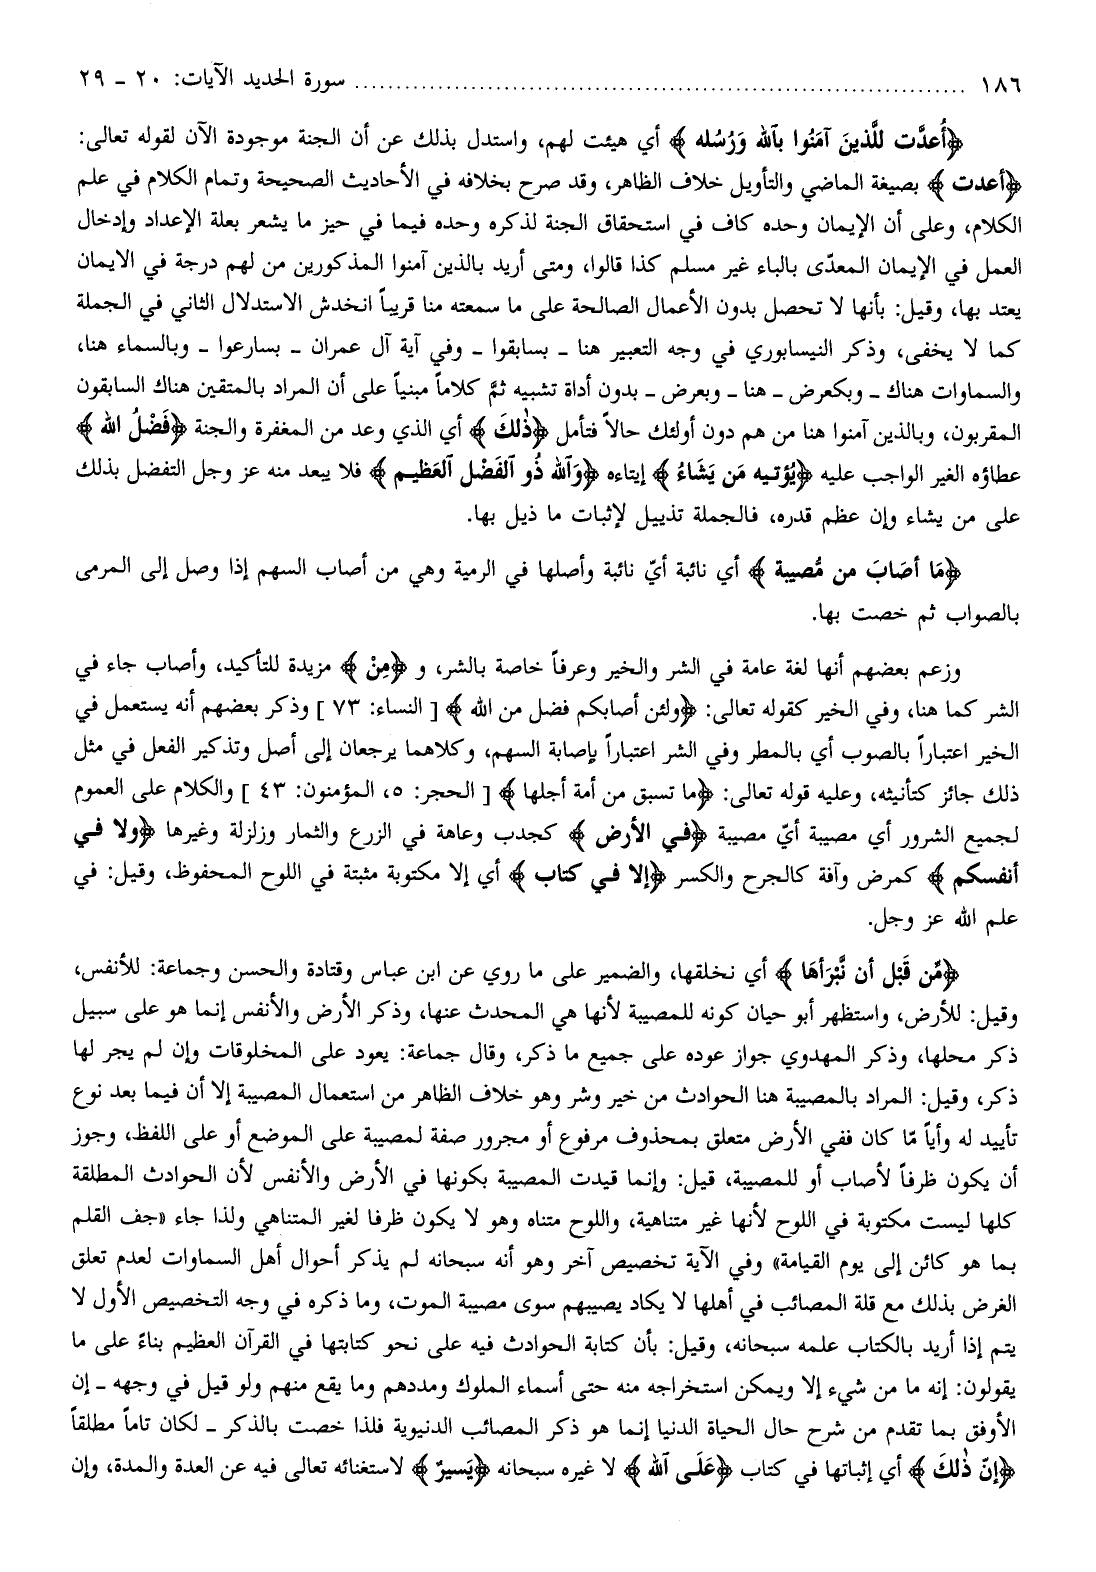 ١٨٦ ........................................................ سورة الحديد الآيات: ٢٠ ـ ٢٩
﴿أُعدَّت للَّذينَ آمَنُوا بٱلله وَرُسُله﴾ أي هيئت لهم، واستدل بذلك عن أن الجنة موجودة الآن لقوله تعالى:
﴿أعدت﴾ بصيغة الماضي والتأويل خلاف الظاهر، وقد صرح بخلافه في الأحاديث الصحيحة وتمام الكلام في علم
الكلام، وعلى أن الإيمان وحده كاف في استحقاق الجنة لذكره وحده فيما في حيز ما يشعر بعلة الإعداد وإدخال
العمل في الإيمان المعدّى بالباء غير مسلم كذا قالوا، ومتى أريد بالذين آمنوا المذكورين من لهم درجة في الايمان
يعتد بها، وقيل: بأنها لا تحصل بدون الأعمال الصالحة على ما سمعته منا قريباً انخدش الاستدلال الثاني في الجملة
كما لا يخفى، وذكر النيسابوري في وجه التعبير هنا ـ بسابقوا ـ وفي آية آل عمران ـ بسارعوا ـ وبالسماء هنا،
والسماوات هناك ـ وبكعرض ـ هنا ـ وبعرض ـ بدون أداة تشبيه ثمَّ كلاماً مبنياً على أن المراد بالمتقين هناك السابقون
المقربون، وبالذين آمنوا هنا من هم دون أولئك حالاً فتأمل ﴿ذٰلكَ﴾ أي الذي وعد من المغفرة والجنة ﴿فَضْلُ الله﴾
عطاؤه الغير الواجب عليه ﴿يُؤتـيه مَن يَشَاءُ﴾ إيتاءه ﴿وَٱلله ذُو ٱلفَضْل ٱلعَظيـم﴾ فلا يبعد منه عز وجل التفضل بذلك
على من يشاء وإن عظم قدره، فالجملة تذييل لإثبات ما ذيل بها.
﴿مَا أصَابَ من مُّصيبة﴾ أي نائبة أيّ نائبة وأصلها في الرمية وهي من أصاب السهم إذا وصل إلى المرمى
بالصواب ثم خصت بها.
وزعم بعضهم أنها لغة عامة في الشر والخير وعرفاً خاصة بالشر، و ﴿مِنْ﴾ مزيدة للتأكيد، وأصاب جاء في
الشر كما هنا، وفي الخير كقوله تعالى: ﴿ولئن أصابكم فضل من الله﴾ [ النساء: ٧٣ ] وذكر بعضهم أنه يستعمل في
الخير اعتباراً بالصوب أي بالمطر وفي الشر اعتباراً بإصابة السهم، وكلاهما يرجعان إلى أصل وتذكير الفعل في مثل
ذلك جائز كتأنيثه، وعليه قوله تعالى: ﴿ما تسبق من أمة أجلها﴾ [ الحجر: ٥، المؤمنون: ٤٣ ] والكلام على العموم
لجميع الشرور أي مصيبة أيّ مصيبة ﴿فـي الأرض﴾ كجدب وعاهة في الزرع والثمار وزلزلة وغيرها ﴿ولا فـي
أنفسكم﴾ كمرض وآفة كالجرح والكسر ﴿إلا فـي كتاب﴾ أي إلا مكتوبة مثبتة في اللوح المحفوظ، وقيل: في
علم الله عز وجل.
﴿مِّن قَبْل أن نَّبْرَأهَا﴾ أي نخلقها، والضمير على ما روي عن ابن عباس وقتادة والحسن وجماعة: للأنفس،
وقيل: للأرض، واستظهر أبو حيان كونه للمصيبة لأنها هي المحدث عنها، وذكر الأرض والأنفس إنما هو على سبيل
ذكر محلها، وذكر المهدوي جواز عوده على جميع ما ذكر، وقال جماعة: يعود على المخلوقات وإن لم يجر لها
ذكر، وقيل: المراد بالمصيبة هنا الحوادث من خير وشر وهو خلاف الظاهر من استعمال المصيبة إلا أن فيما بعد نوع
تأييد له وأياً مّا كان ففي الأرض متعلق بمحذوف مرفوع أو مجرور صفة لمصيبة على الموضع أو على اللفظ، وجوز
أن يكون ظرفاً لأصاب أو للمصيبة، قيل: وإنما قيدت المصيبة بكونها في الأرض والأنفس لأن الحوادث المطلقة
كلها ليست مكتوبة في اللوح لأنها غير متناهية، واللوح متناه وهو لا يكون ظرفا لغير المتناهي ولذا جاء «جف القلم
بما هو كائن إلى يوم القيامة» وفي الآية تخصيص آخر وهو أنه سبحانه لم يذكر أحوال أهل السماوات لعدم تعلق
الغرض بذلك مع قلة المصائب في أهلها لا يكاد يصيبهم سوى مصيبة الموت، وما ذكره في وجه التخصيص الأول لا
يتم إذا أريد بالكتاب علمه سبحانه، وقيل: بأن كتابة الحوادث فيه على نحو كتابتها في القرآن العظيم بناءً على ما
يقولون: إنه ما من شيء إلا ويمكن استخراجه منه حتى أسماء الملوك ومددهم وما يقع منهم ولو قيل في وجهه ـ إن
الأوفق بما تقدم من شرح حال الحياة الدنيا إنما هو ذكر المصائب الدنيوية فلذا خصت بالذكر ـ لكان تاماً مطلقاً
﴿إنّ ذٰلكَ﴾ أي إثباتها في كتاب ﴿عَلَـى ٱلله﴾ لا غيره سبحانه ﴿يَسيرٌ﴾ لاستغنائه تعالى فيه عن العدة والمدة، وإن